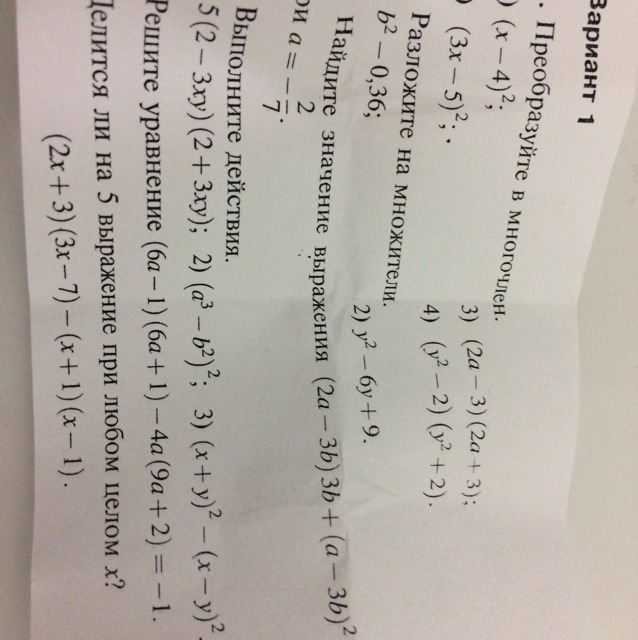 Вариант 1
. Преобразуйте в многочлен.
) (x − 4)²; 3) (2a − 3)(2a + 3);
) (3x − 5)²; 4) (y² − 2)(y² + 2).
Разложите на множители.
b² − 0,36; 2) y² − 6y + 9.
Найдите значение выражения (2a − 3b)3b + (a − 3b)²
ри a = −2/7.
Выполните действия.
5(2 − 3xy)(2 + 3xy); 2) (a³ − b²)²; 3) (x + y)² − (x − y)².
Решите уравнение (6a − 1)(6a + 1) − 4a(9a + 2) = −1.
Делится ли на 5 выражение при любом целом x?
(2x + 3)(3x − 7) − (x + 1)(x − 1).